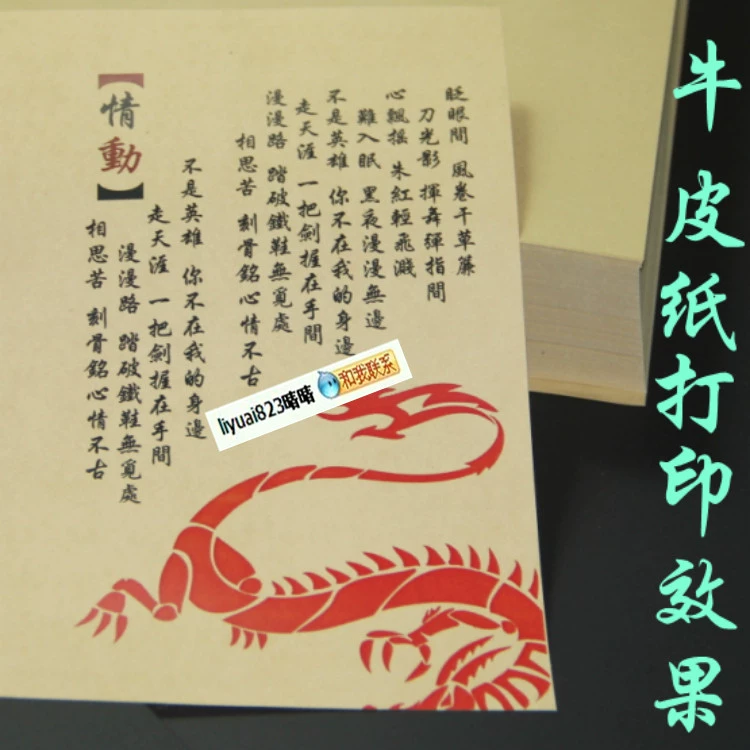 牛皮纸打印效果
眨眼間 風卷千草簾
刀光影 揮舞彈指間
心飄搖 朱紅輕飛濺
難入眠 黑夜漫漫無邊
不是英雄 你不在我的身邊
走天涯 一把劍握在手間
漫漫路 踏破鐵鞋無覓處
相思苦 刻骨銘心情不古
【情動】
不是英雄 你不在我的身邊
走天涯 一把劍握在手間
漫漫路 踏破鐵鞋無覓處
相思苦 刻骨銘心情不古
liyuai823晴晴 和我联系